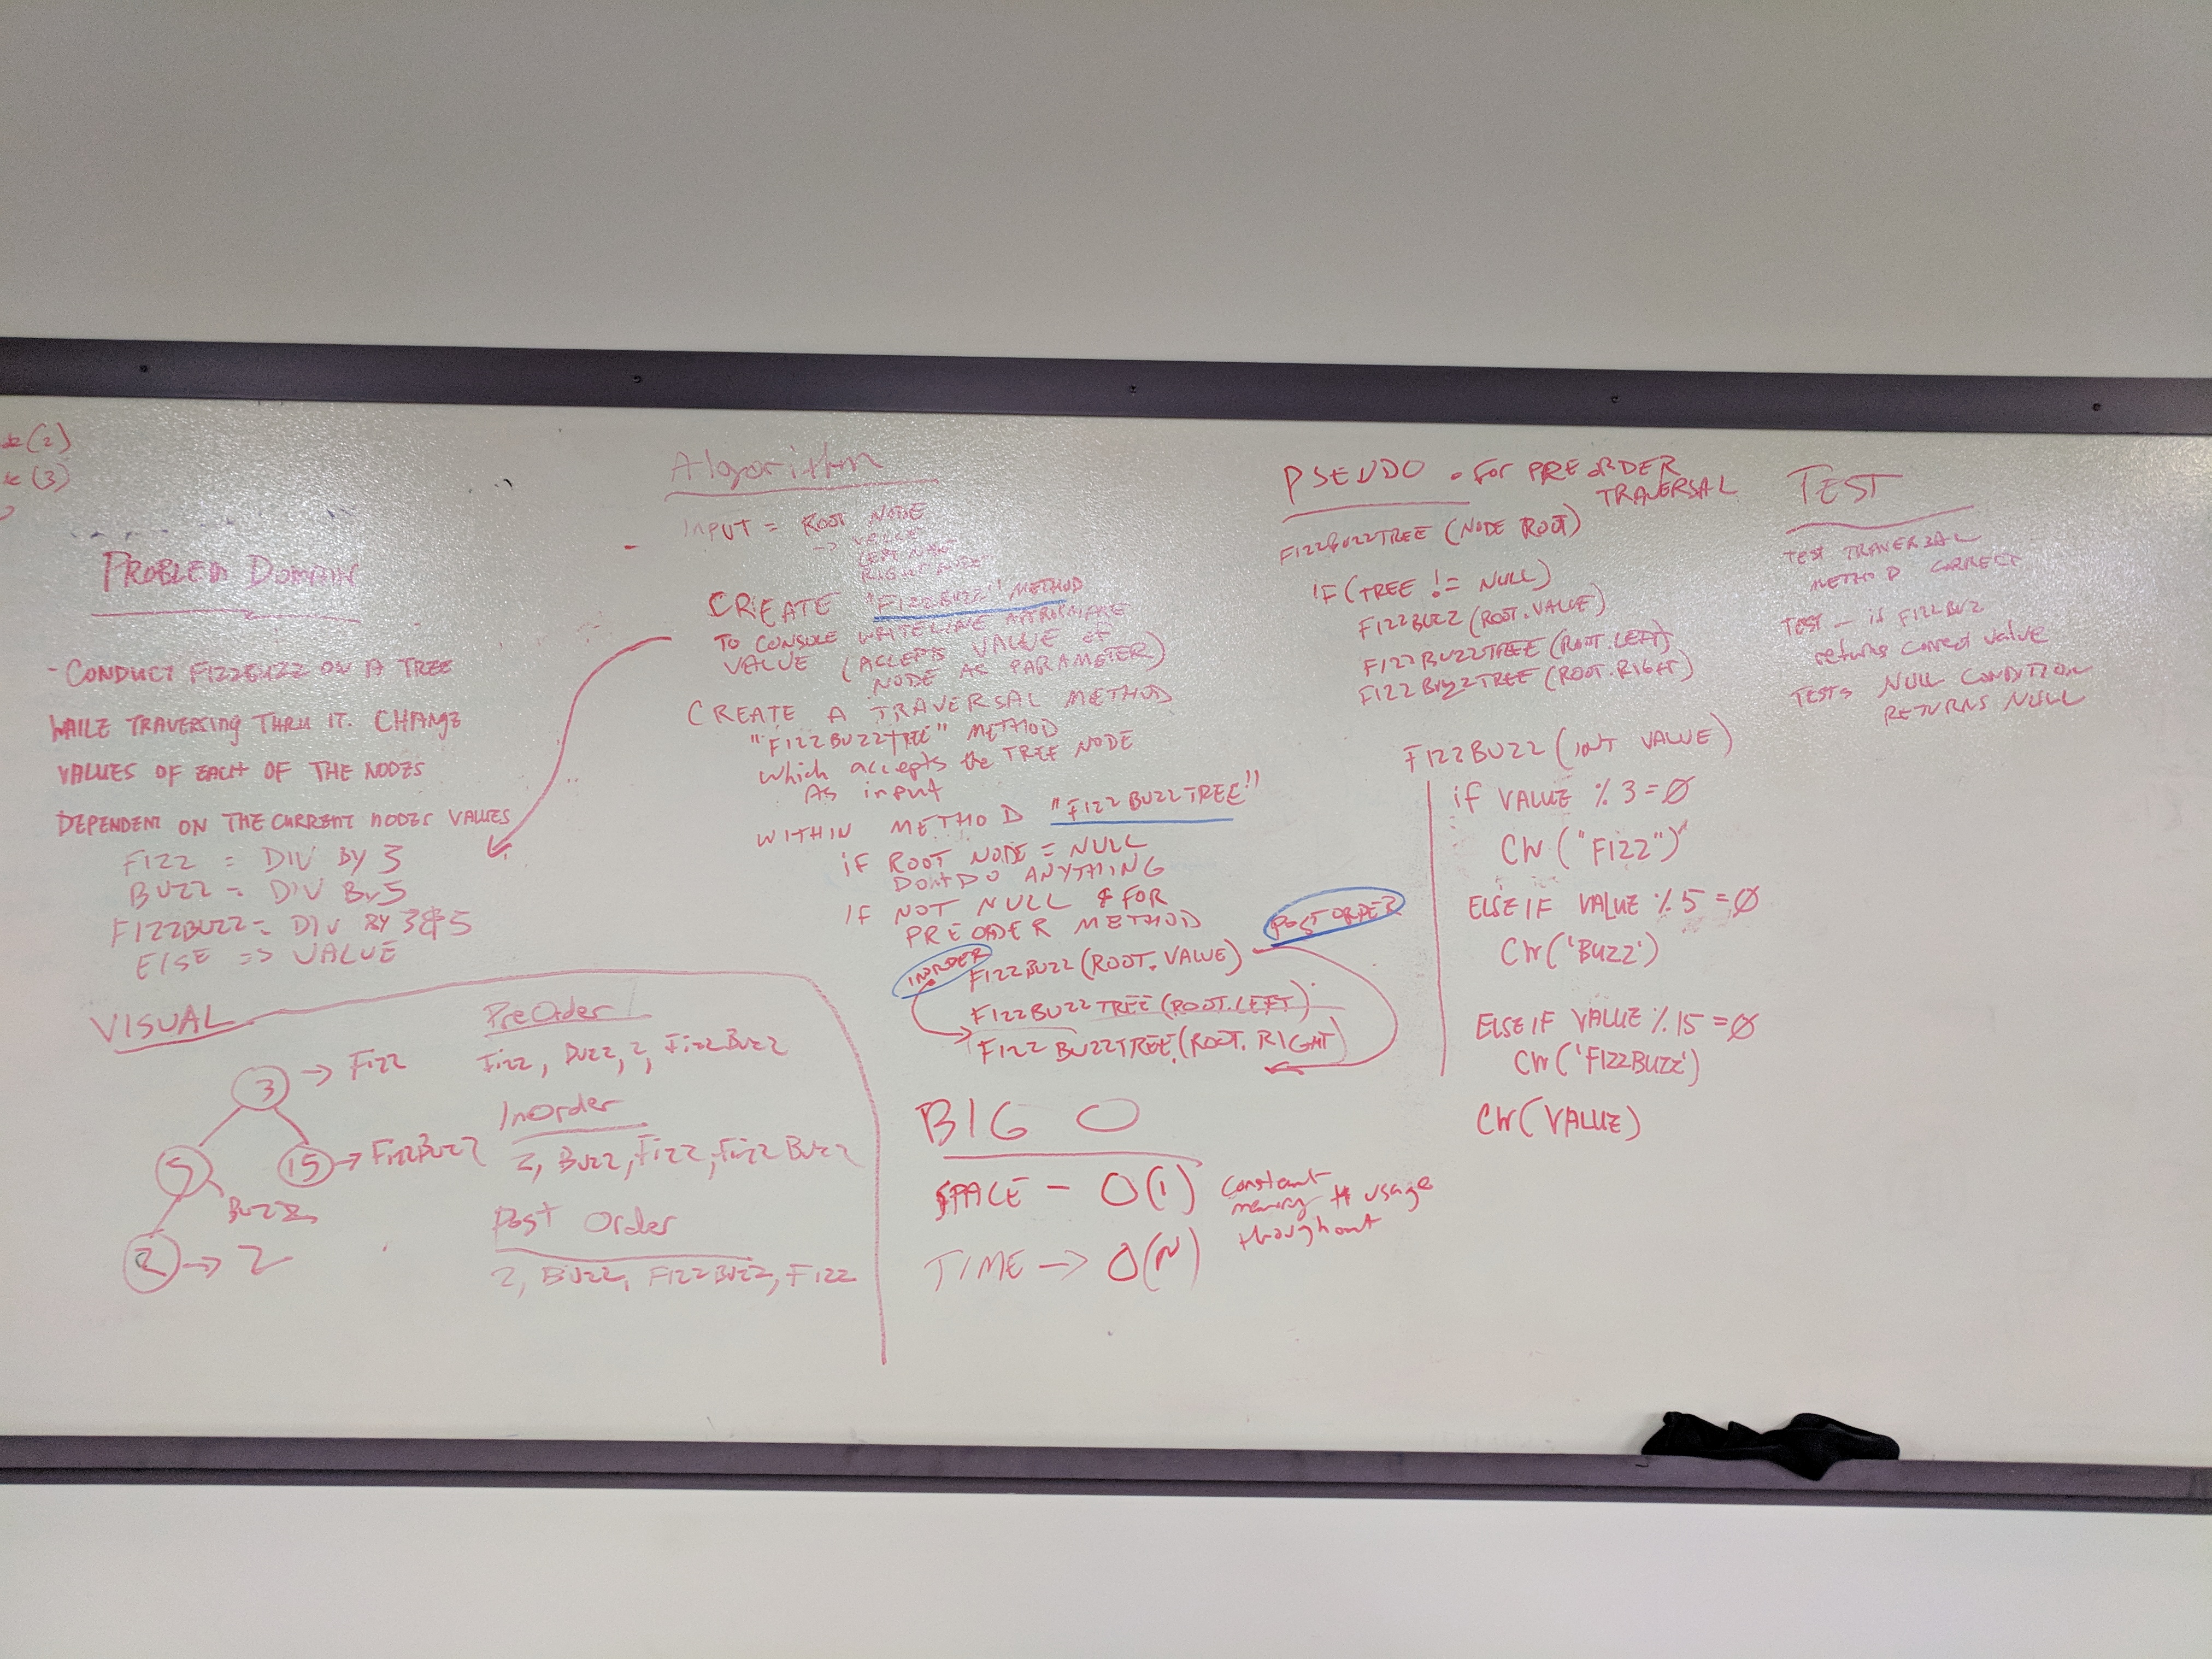 (2)
(3)
PROBLEM DOMAIN
- CONDUCT FIZZBUZZ ON A TREE
WHILE TRAVERSING THRU IT. CHANGE
VALUES OF EACH OF THE NODES
DEPENDENT ON THE CURRENT NODES VALUES
FIZZ = DIV BY 3
BUZZ = DIV BY 5
FIZZBUZZ = DIV BY 3 & 5
ELSE => VALUE
VISUAL
3 → Fizz
5
Buzz
15 → FizzBuzz
2 → 2
PreOrder
Fizz, Buzz, 2, FizzBuzz
InOrder
2, Buzz, Fizz, FizzBuzz
Post Order
2, BUZZ, FIZZBUZZ, FIZZ
Algorithm
INPUT = ROOT NODE
→ VALUE
LEFT NODE
RIGHT NODE
CREATE "FIZZBUZZ" METHOD
TO CONSOLE WRITELINE APPROPRIATE
VALUE (ACCEPTS VALUE OF
NODE AS PARAMETER)
CREATE A TRAVERSAL METHOD
"FIZZBUZZTREE" METHOD
which accepts the TREE NODE
As input
WITHIN METHOD "FIZZBUZZTREE"
IF ROOT NODE = NULL
DONT DO ANYTHING
IF NOT NULL & FOR
PREORDER METHOD
INORDER
POST ORDER
FIZZBUZZ (ROOT.VALUE)
FIZZBUZZTREE (ROOT.LEFT)
FIZZBUZZTREE (ROOT.RIGHT)
BIG O
SPACE - O(1) constant
memory usage
throughout
TIME → O(N)
PSEUDO • For PREORDER
TRAVERSAL
FIZZBUZZTREE (NODE ROOT)
IF (TREE != NULL)
FIZZBUZZ (ROOT.VALUE)
FIZZBUZZTREE (ROOT.LEFT)
FIZZBUZZTREE (ROOT.RIGHT)
FIZZBUZZ (INT VALUE)
if VALUE % 3 = Ø
CW ("FIZZ")
ELSE IF VALUE % 5 = Ø
CW ('BUZZ')
ELSE IF VALUE % 15 = Ø
CW ('FIZZBUZZ')
CW (VALUE)
TEST
Test TRAVERSAL
METHOD CORRECT
TEST - if FIZZBUZ
returns correct value
TESTS NULL CONDITION
RETURNS NULL